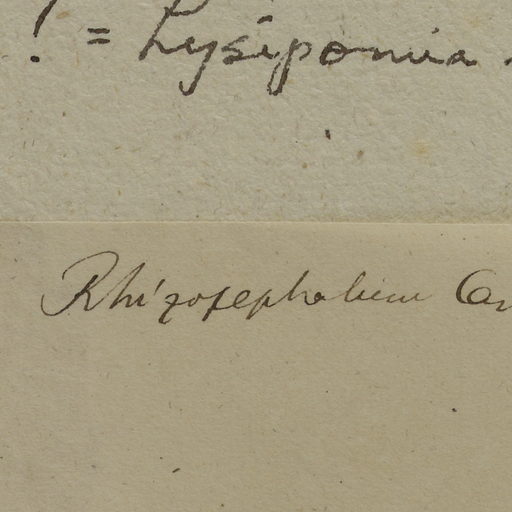 ! = Lysipomia
Rhizocephalum